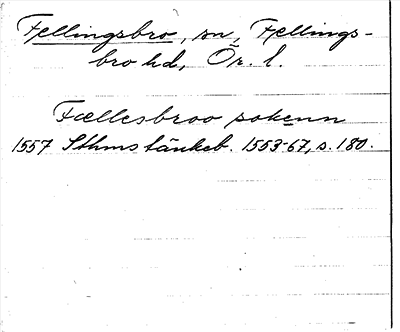 Fellingsbro, sn, Fellings-
bro hd, Ör. l.
Fællesbroo sokenn
1557 Sthms tänkeb. 1553-67, s. 180.